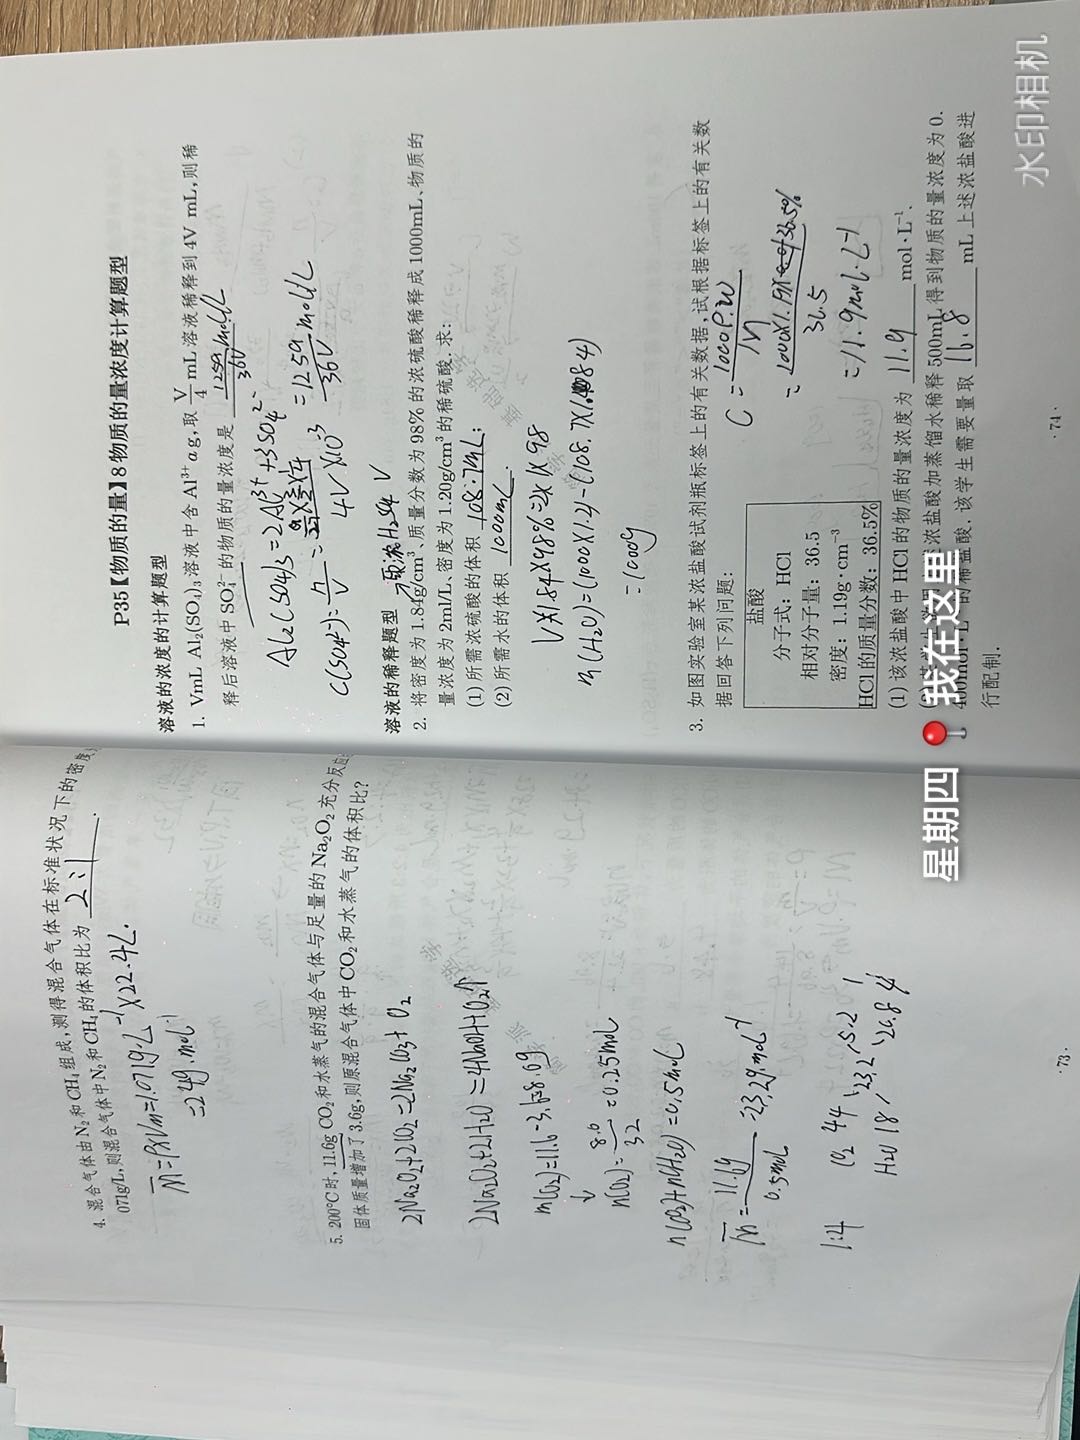 4. 混合气体由N₂和CH₄组成,测得混合气体在标准状况下的密度
071g/L,则混合气体中N₂和CH₄的体积比为 2:1 .
M̄=ρ×Vm=1.071g·L⁻¹×22.4L.
=24g·mol⁻¹
5. 200℃时,11.6g CO₂和水蒸气的混合气体与足量的Na₂O₂充分反应
固体质量增加了3.6g,则原混合气体中CO₂和水蒸气的体积比?
2Na₂O₂+2CO₂=2Na₂CO₃+O₂
2Na₂O₂+2H₂O=4NaOH+O₂↑
m(O₂)=11.6-3.6=8.0g
↓
n(O₂)=8.0/32=0.25mol
n(CO₂)+n(H₂O)=0.5mol
M̄=11.6g/0.5mol=23.2g·mol⁻¹
1:4
CO₂ 44 5.2 1
23.2
H₂O 18 20.8 4
·73·
P35【物质的量】8物质的量浓度计算题型
溶液的浓度的计算题型
1. VmL Al₂(SO₄)₃溶液中含Al³⁺ a g,取V/4 mL溶液稀释到4V mL,则稀
释后溶液中SO₄²⁻的物质的量浓度是 125a/36V mol/L
Al₂(SO₄)₃=2Al³⁺+3SO₄²⁻
c(SO₄²⁻)=n/V=a/27×3/2×1/4 / 4V×10⁻³=125a/36V mol/L
溶液的稀释题型
浓H₂SO₄ V
2. 将密度为1.84g/cm³、质量分数为98%的浓硫酸稀释成1000mL、物质的
量浓度为2ml/L、密度为1.20g/cm³的稀硫酸.求:
(1) 所需浓硫酸的体积 108.7mL;
(2) 所需水的体积 1000mL.
V×1.84×98%=2×1×98
m(H₂O)=(1000×1.2)-(108.7×1.84)
=1000g
3. 如图实验室某浓盐酸试剂瓶标签上的有关数据,试根据标签上的有关数
据回答下列问题:
盐酸
分子式:HCl
相对分子量:36.5
密度:1.19g·cm⁻³
HCl的质量分数:36.5%
C=1000ρ.W/M
=1000×1.19×36.5%/36.5
=11.9mol·L⁻¹
(1) 该浓盐酸中HCl的物质的量浓度为 11.9 mol·L⁻¹.
浓盐酸加蒸馏水稀释500mL得到物质的量浓度为0.
的稀盐酸.该学生需要量取 16.8 mL上述浓盐酸进
行配制.
·74·
星期四 📍我在这里
水印相机